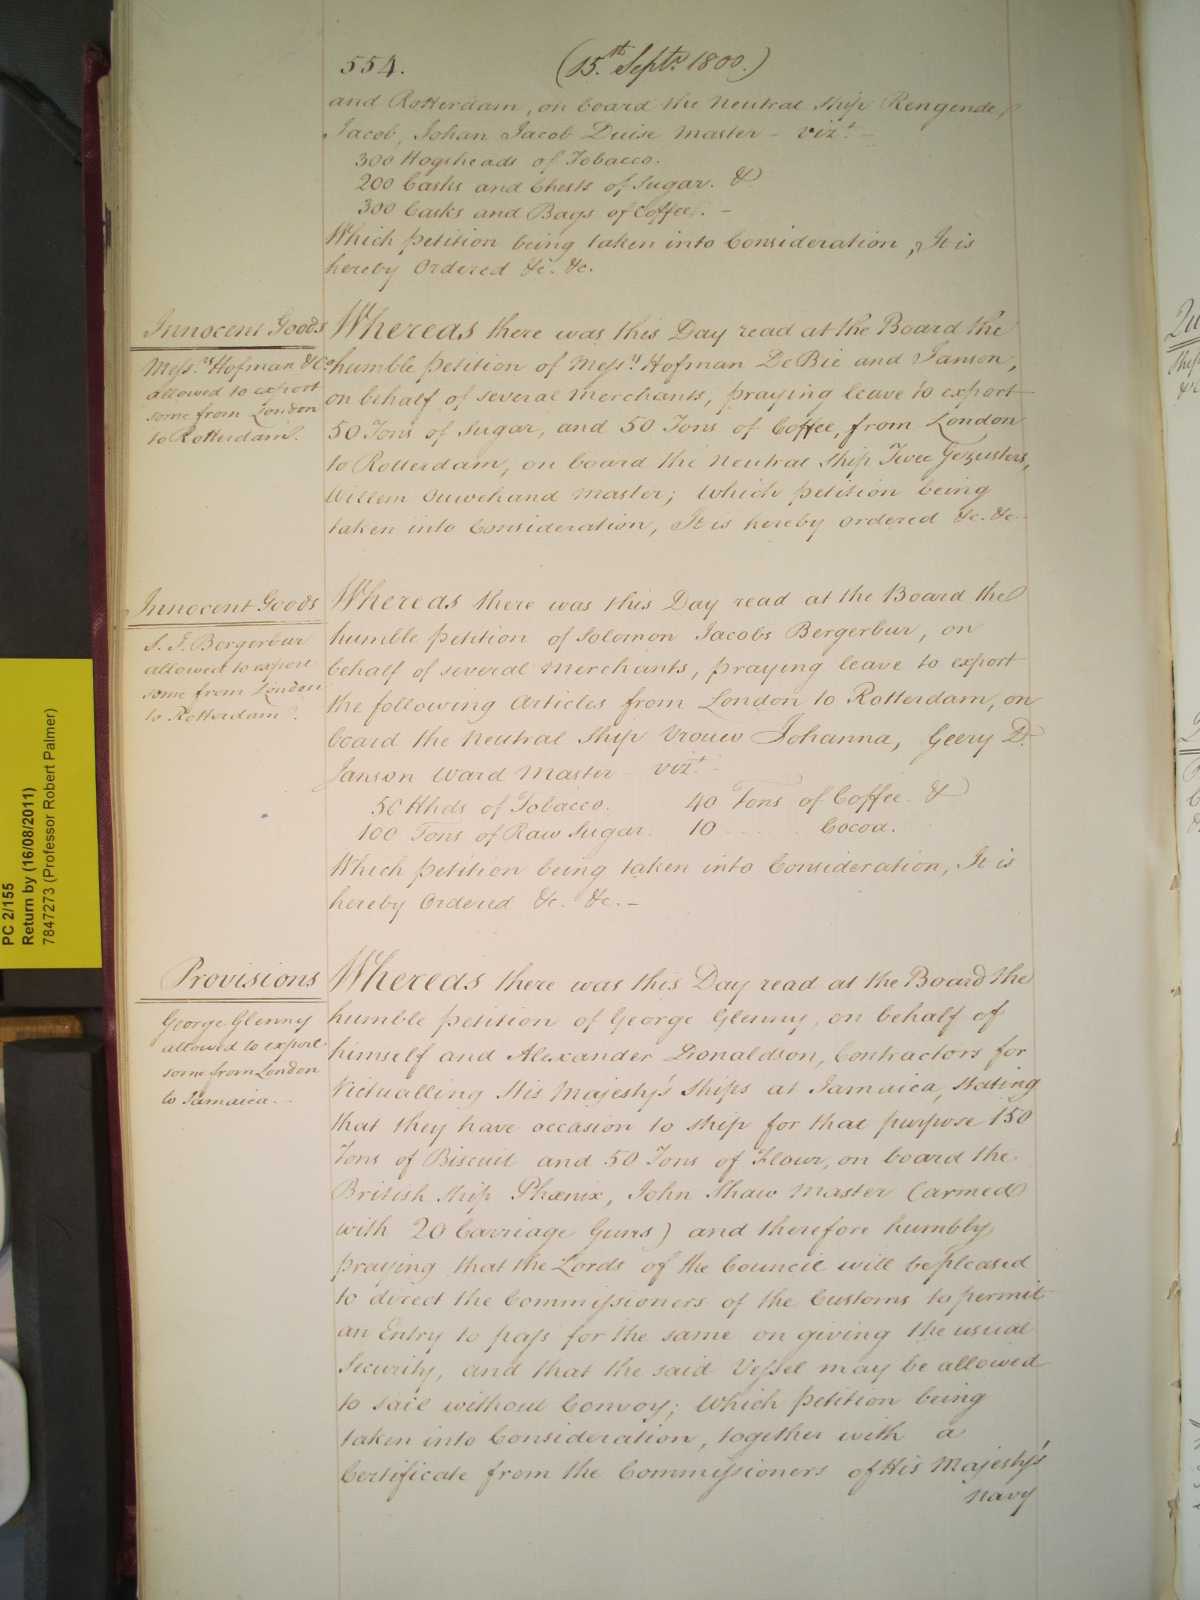 554. (15.th Septr. 1800.)
and Rotterdam, on board the Neutral Ship Rengende
Jacob, Johan Jacob Duise Master - vizt. -
300 Hogsheads of Tobacco.
200 Casks and Chests of Sugar. &
300 Casks and Bags of Coffee. -
Which petition being taken into Consideration, It is
hereby Ordered &c. &c.
Innocent Goods
Messrs. Hofman & Co.
allowed to export
some from London
to Rotterdam.
Whereas there was this Day read at the Board the
humble Petition of Messrs. Hofman De Bie and Janson,
on behalf of several Merchants, praying leave to export
50 Tons of Sugar, and 50 Tons of Coffee, from London
to Rotterdam, on board the Neutral Ship Twee Gezusters,
Willem Ouwehand Master; Which petition being
taken into Consideration, It is hereby ordered &c. &c.
Innocent Goods
S. J. Bergerbur
allowed to export
some from London
to Rotterdam.
Whereas there was this Day read at the Board the
humble petition of Solomon Jacobs Bergerbur, on
behalf of several Merchants, praying leave to export
the following Articles from London to Rotterdam, on
board the Neutral Ship Vrouw Johanna, Geery D.
Janson Ward Master vizt. -
50 Hhds of Tobacco. 40 Tons of Coffee. &
100 Tons of Raw Sugar. 10 .... Cocoa.
Which petition being taken into Consideration, It is
hereby Ordered &c. &c. -
Provisions
George Glenny
allowed to export
some from London
to Jamaica. -
Whereas there was this Day read at the Board the
humble petition of George Glenny, on behalf of
himself and Alexander Donaldson, Contractors for
Victualling His Majesty's Ships at Jamaica, stating
that they have occasion to ship for that purpose 150
Tons of Biscuit and 50 Tons of Flour, on board the
British Ship Phœnix, John Shaw Master (armed
with 20 Carriage Guns) and therefore humbly
praying that the Lords of the Council will be pleased
to direct the Commissioners of the Customs to permit
an Entry to pass for the same on giving the usual
Security, and that the said Vessel may be allowed
to sail without Convoy; Which petition being
taken into Consideration, together with a
Certificate from the Commissioners of His Majesty's
Navy
PC 2/155
Return by (16/08/2011)
7847273 (Professor Robert Palmer)